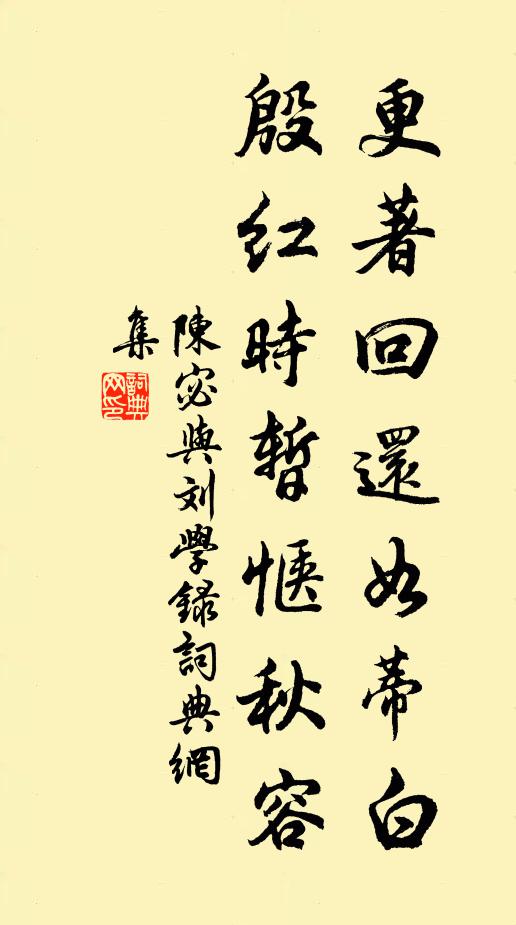 更著回還如蒂白
殷红時暫惬秋容
陳宓與刘學録詞典網
集
詞典
网印